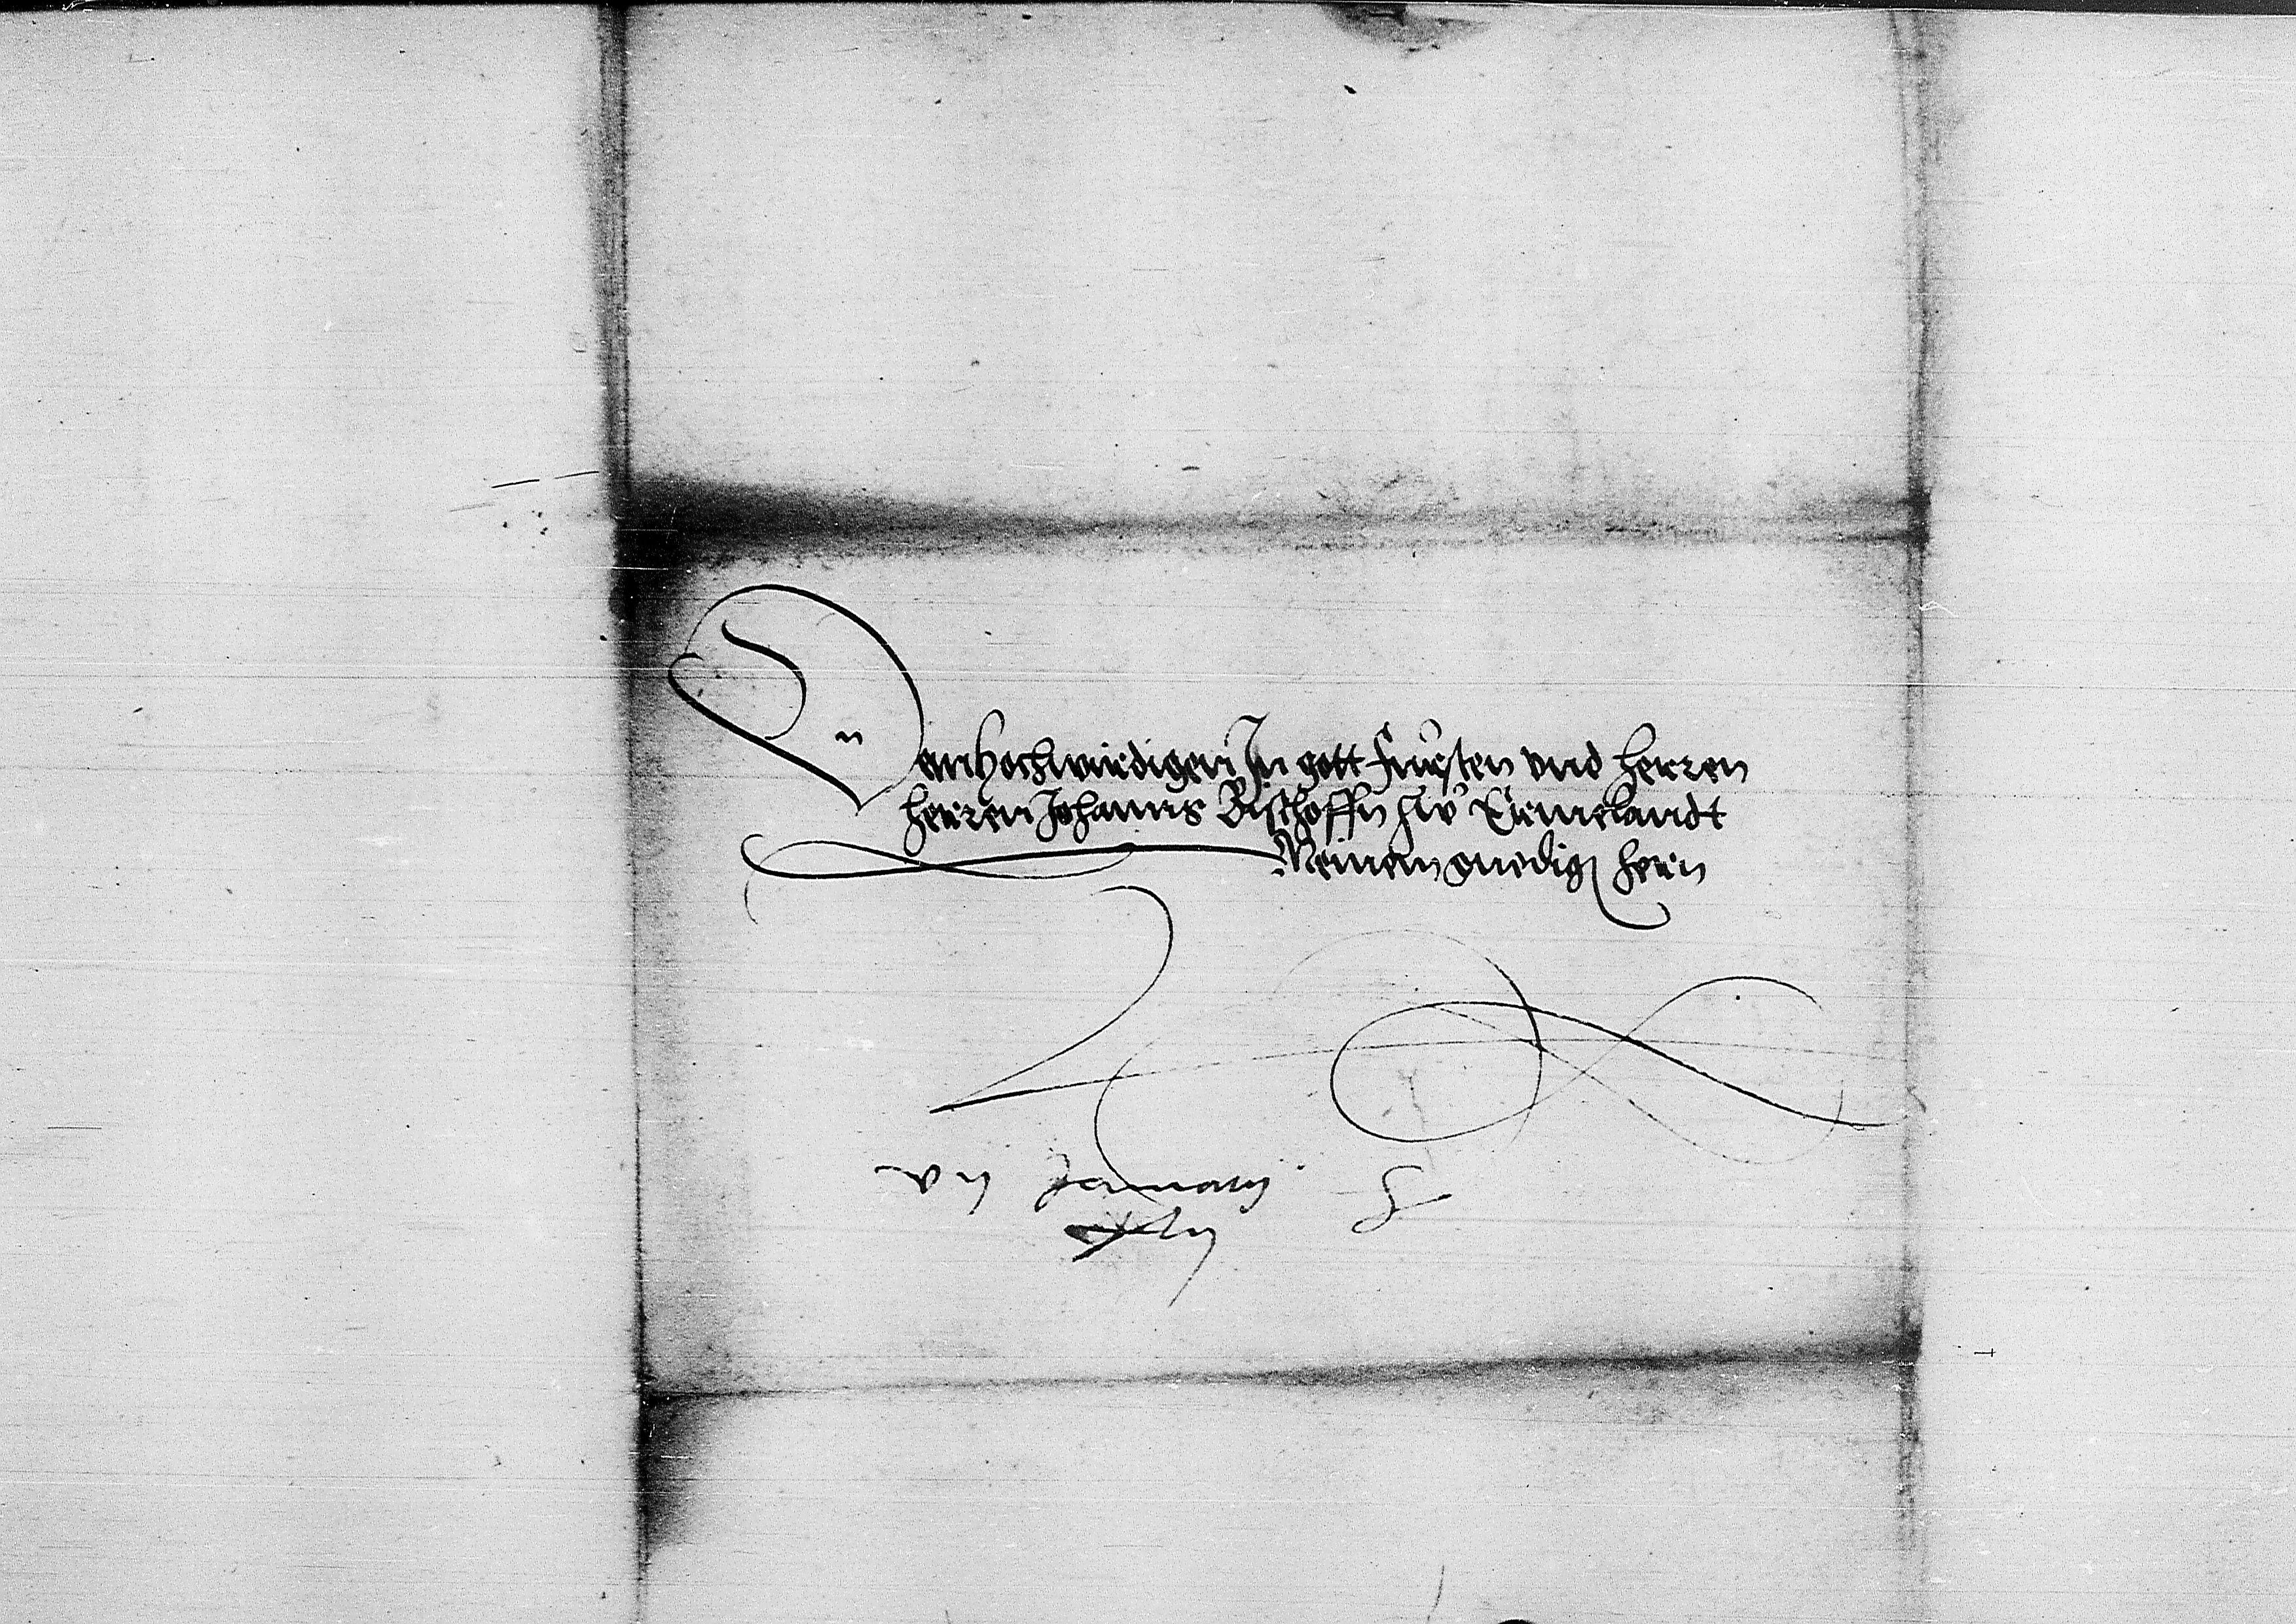 Dem hochwirdigen In gott fürsten vnd herren
herren Johanns Bischoffn zw Ermelandt
Meinem gnedigen hern
vij Januarij
xlij